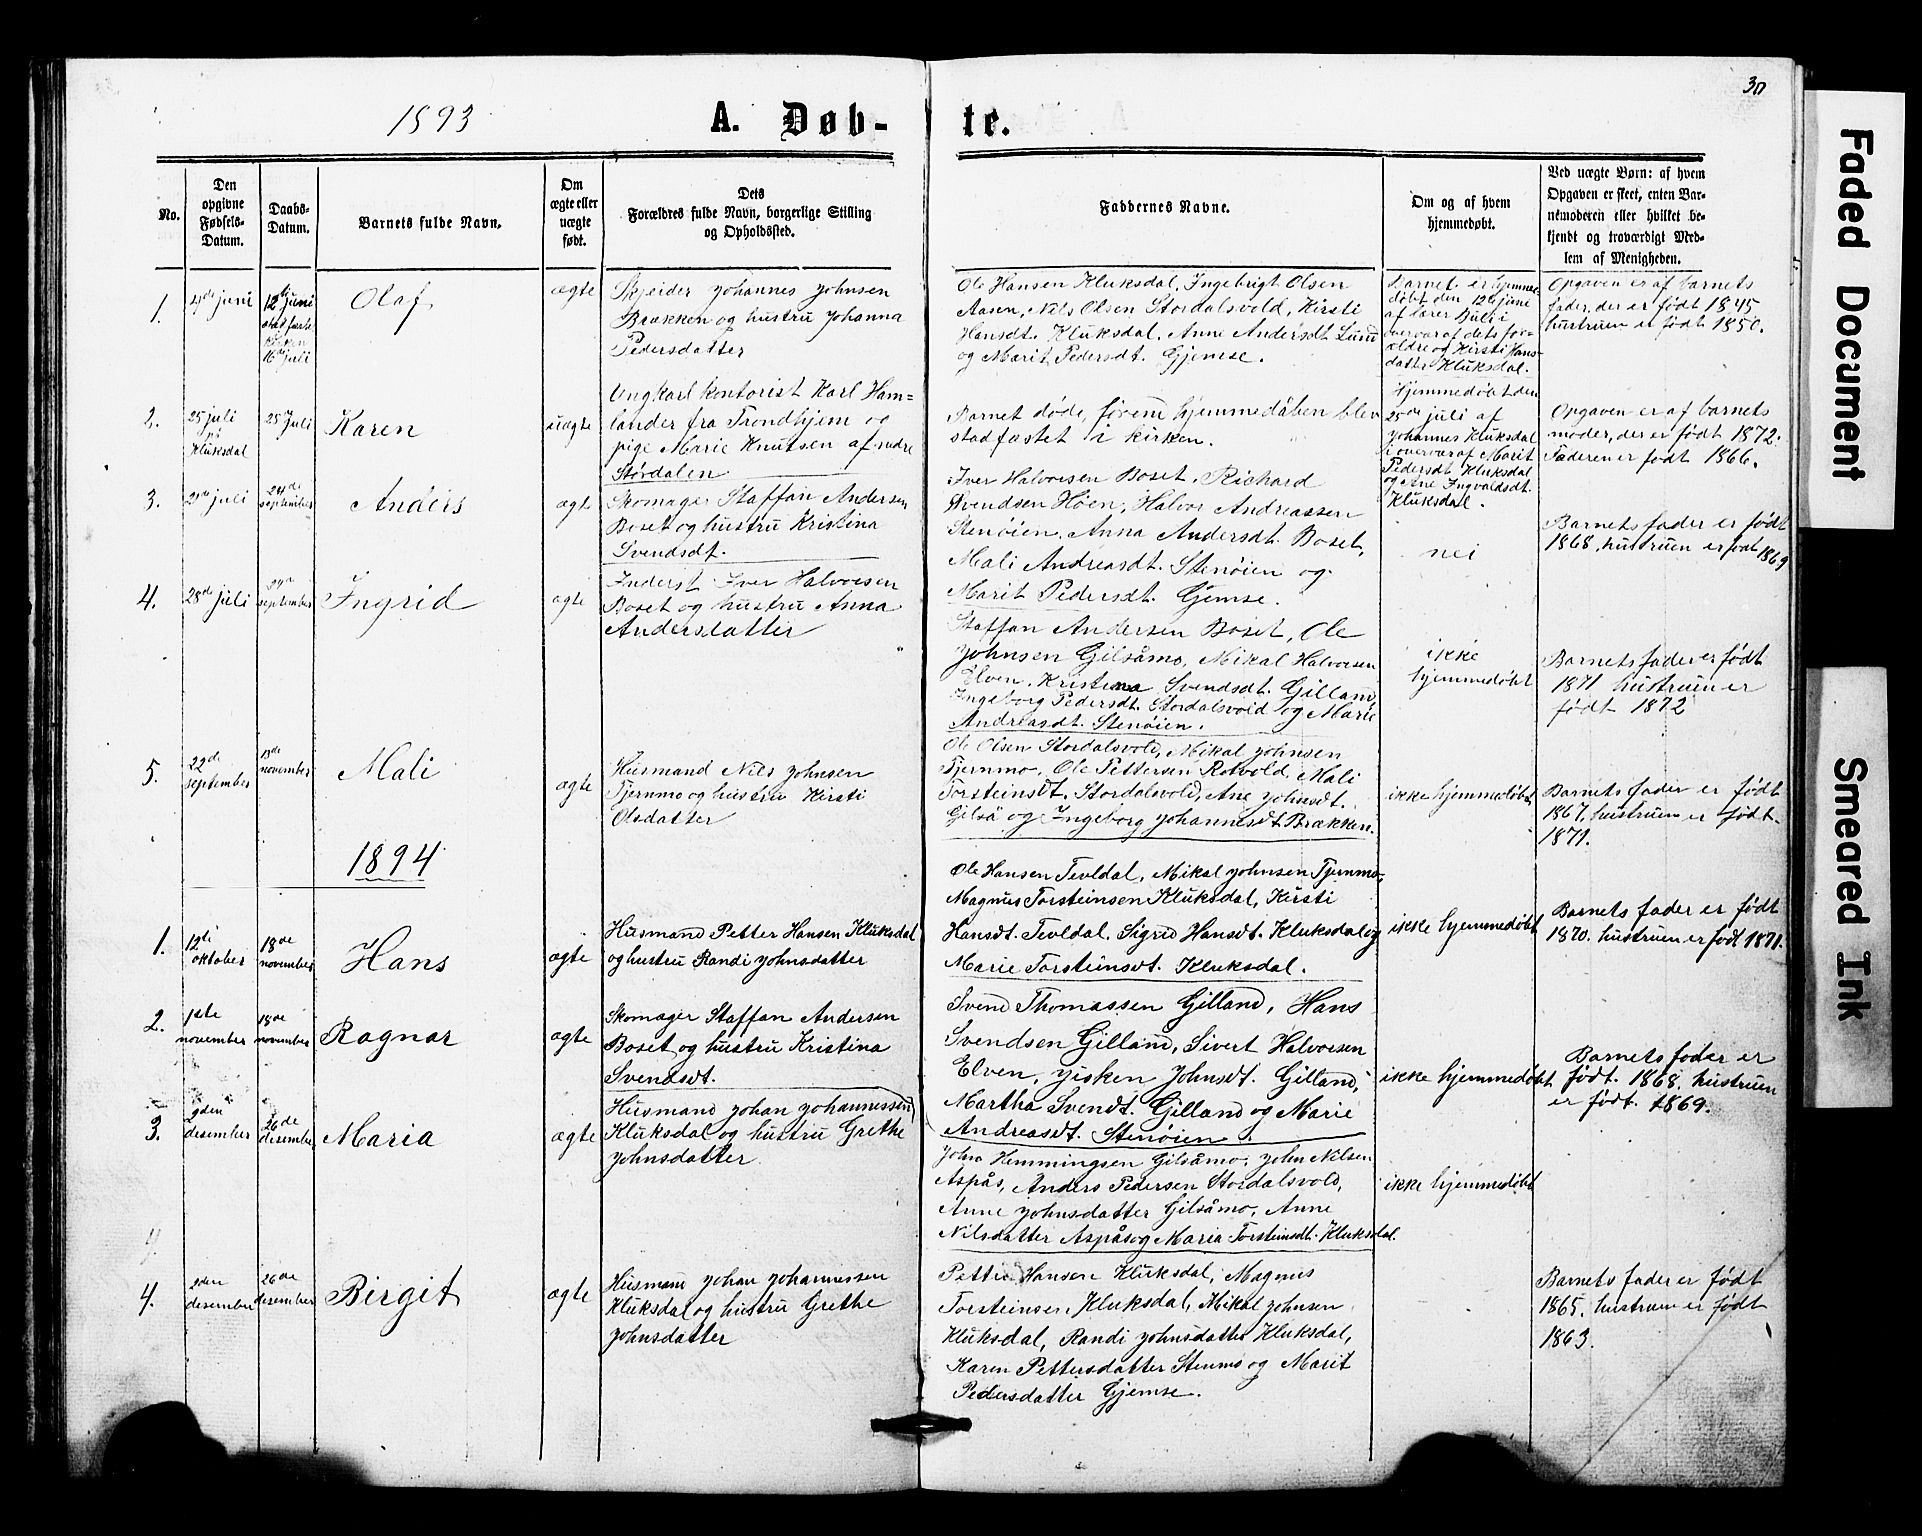 30
1893
A. Døb-
te.
No.
Den
opgivne
Fødsels-
Datum.
Daabs-
Datum.
Barnets fulde Navn.
Om
ægte eller
uægte
født.
Dets
Forældres fulde Navn, borgerlige Stilling
og Opholdssted.
Faddernes Navne.
Om og af hvem
hjemmedøbt.
Ved uægte Børn: af hvem
Opgaven er skeet, enten Bar-
nemoderen eller hvilket be-
kjendt og troværdigt Med-
lem af Menigheden.
1.
4de juni
12te juni
kirken
16de juli
Olaf
ægte
Skjeider Johannes Johnsen
Brækken og hustru Johanna
Pedersdatter
Ole Hansen Kluksdal, Ingebrigt Olsen
Aasen, Nils Olsen Stordalsvold, Kirsti
Hansdt. Kluksdal, Anne Andersdt. Lund
og Marit Pedersdt. Gjemse.
Barnet er hjemme
døbt den 12te juni
af lærer
overvær af dets for-
ældre og Kirsti Hans-
datter Kluksdal.
Opgaven er af barnets
fader, der er født 1845
hustruen er født 1850.
2.
25 juli
på
Kluksdal
25 Juli
Karen
uægte
Ungkarl kontorist Karl Ham=
lander fra Trondhjem og
pige Marie Knutsen af nedre
Stördalen
Barnet døde, førend hjemmedåben blev
stadfæstet i kirken.
Hjemmedøbt den
25de juli af
Johannes Kluksdal
i overvær af Marit
Pedersdt. Kluksdal
og Ane Ingvaldsdt.
Kluksdal.
Opgaven er af barnets
moder, der er født 1872.
Faderen er født 1866.
3.
juli
24de
september
Anders
ægte
Skomager Staffan Andersen
Boset og hustru Kristina
Svendsdt.
Iver Halvorsen Boset, Richard
Svendsen Höen, Halvor Andreassen
Stenöien, Anna Andersdt. Boset,
Mali Andreasdt. Stenöien og
Marit Pedersdt. Gjemse.
nei
Barnets fader er født
1868, hustruen er født 1869
4.
28de juli
24de
september
Ingrid
ægte
Inderst Iver Halvorsen
Boset og hustru Anna
Andersdatter
Staffan Andersen Boset, Ole
Johnsen Gilsåmo, Mikal Halvorsen
Elven, Kristina Svendsdt. Gilland,
Ingeborg Pedersdt. Stordalsvold og Marie
Andreasdt. Stenöien.
ikke
hjemmedøbt
Barnets fader er født
1871 hustruen er
født 1872
5.
22de
september
13de
november
Mali
ægte
Husmand Nils Johnsen
Tjernmo og hustru Kirsti
Olsdatter
Ole Olsen Stordalsvold, Mikal Johnsen
Tjernmo, Ole Pettersen Rotvold, Mali
Torsteinsdt. Stordalsvold, Ane Johnsdt.
Gilså og Ingeborg Johannesdt. Brækken.
ikke hjemmedøbt
Barnets fader er født
1867, hustruen er født
1871.
1894
1.
12te
oktober
18de
november
Hans
ægte
Husmand Petter Hansen Kluksdal
og hustru Randi Johnsdatter
Ole Hansen Tevldal, Mikal Johnsen Tjernmo,
Magnus Torsteinsen Kluksdal, Kirsti
Hansdt. Tevldal, Sigrid Hansdt. Kluksdal og
Marie Torsteinsdt. Kluksdal.
ikke hjemmedøbt
Barnets fader er født
1870. hustruen er født 1871.
2.
1ste
november
18de
november
Ragnar
ægte
Skomager Staffan Andersen
Boset og hustru Kristina
Svendsdt.
Svend Thomassen Gilland, Hans
Svendsen Gilland, Sivert Halvorsen
Elven, Johnsdt. Gilland,
Martha Svendt. Gilland og Marie
Andreasdt. Stenöien.
ikke hjemmedøbt
Barnets fader er
født. 1868. hustruen
er født. 1869.
3.
desember
26de
desember
Maria
ægte
Husmand Johan Johannessen
Kluksdal og hustru Grethe
Johnsdatter
John Hemmingsen Gilsåmo, John Nilsen
Aspås, Anders Pedersen Stordalsvold,
Anne Johnsdatter Gilsåmo, Anne
Nilsdatter Aspås og Maria Torsteinsdt. Kluksdal.
ikke hjemmedøbt
4.
desember
26de
desember
Birgit
ægte
Husmand Johan Johannessen
Kluksdal og hustru Grethe
Johnsdatter
Petter Hansen Kluksdal, Magnus
Torsteinsen Kluksdal, Mikal Johnsen
Kluksdal, Randi Johnsdatter Kluksdal,
Karen Pettersdatter Stenmo og Marit
Pedersdatter Gjemse.
Barnets fader er født
1865. hustruen er født
1863.
Faded Document
Smeared Ink